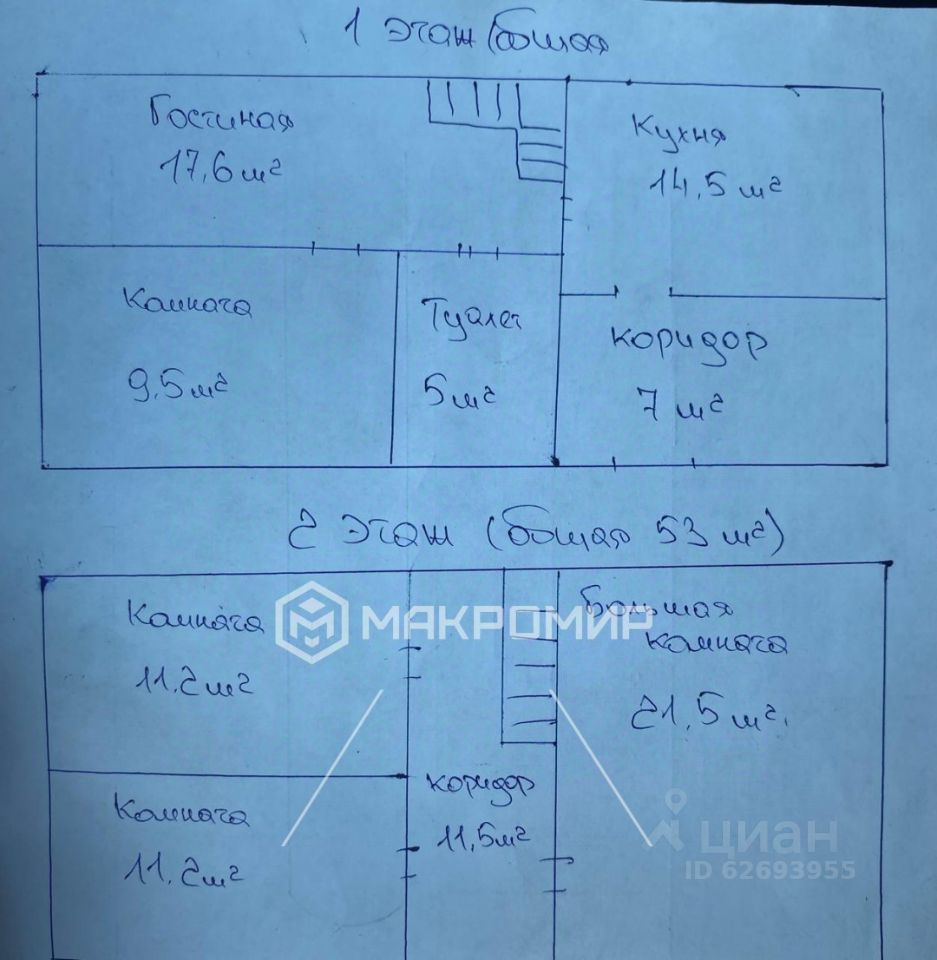 1 этаж (общая
Гостиная
17,6 м²
Кухня
14,5 м²
Комната
9,5 м²
Туалет
5 м²
коридор
7 м²
2 этаж (общая 53 м²)
Комната
11,2 м²
МАКРОМИР
Большая
комната
21,5 м².
Комната
11,2 м²
коридор
11,5 м²
циан
ID 62693955